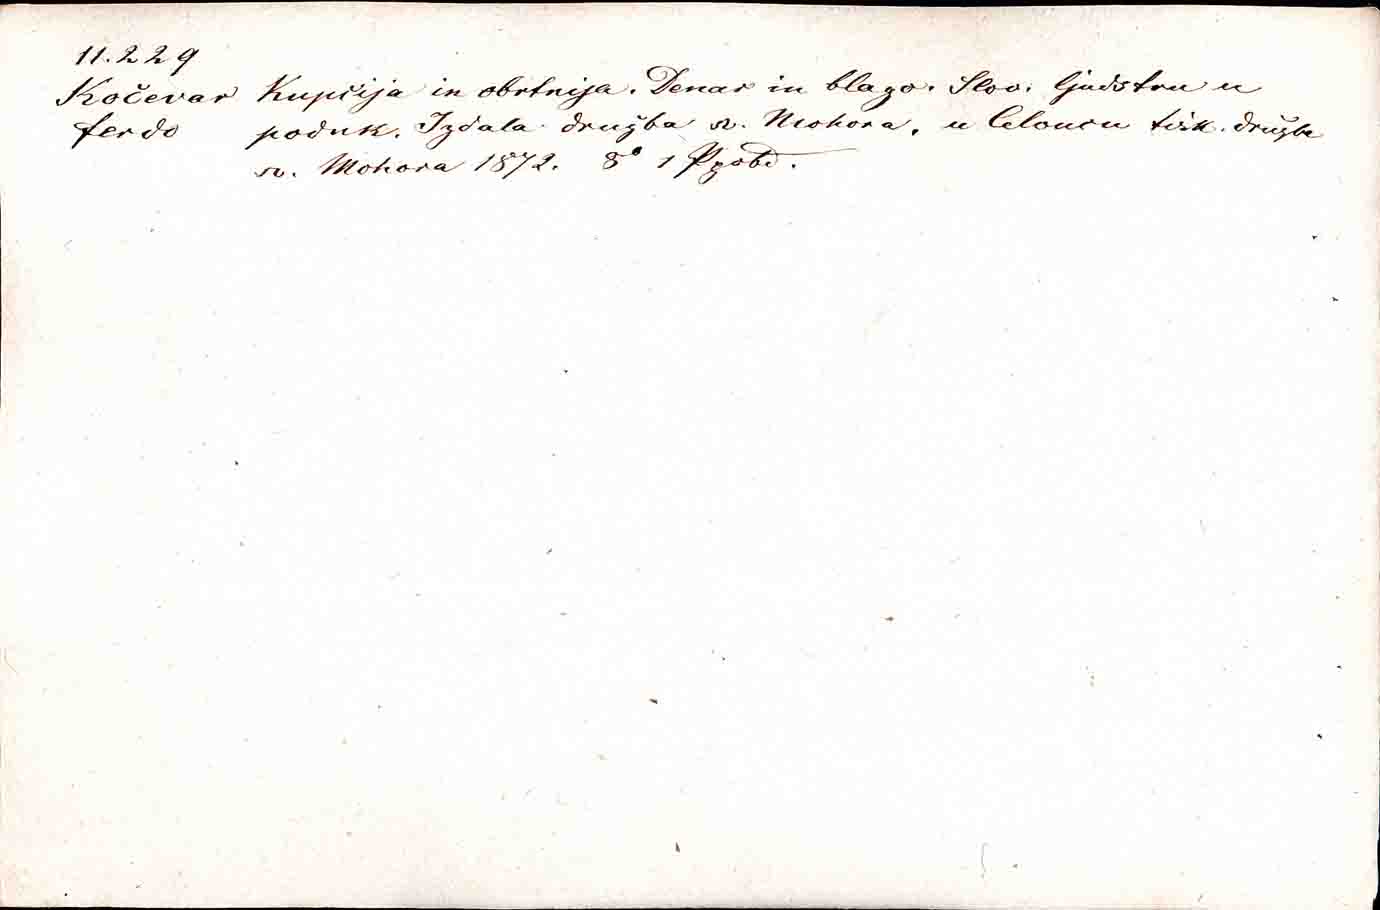 11.229
Kočevar Kupčija in obrtnija. Denar in blago. Slov. ljudstvu u
Ferdo poduk. Izdala družba sv. Mohora. u Celovcu tisk. družba
sv. Mohora 1872. 8° 1 Ppobd.